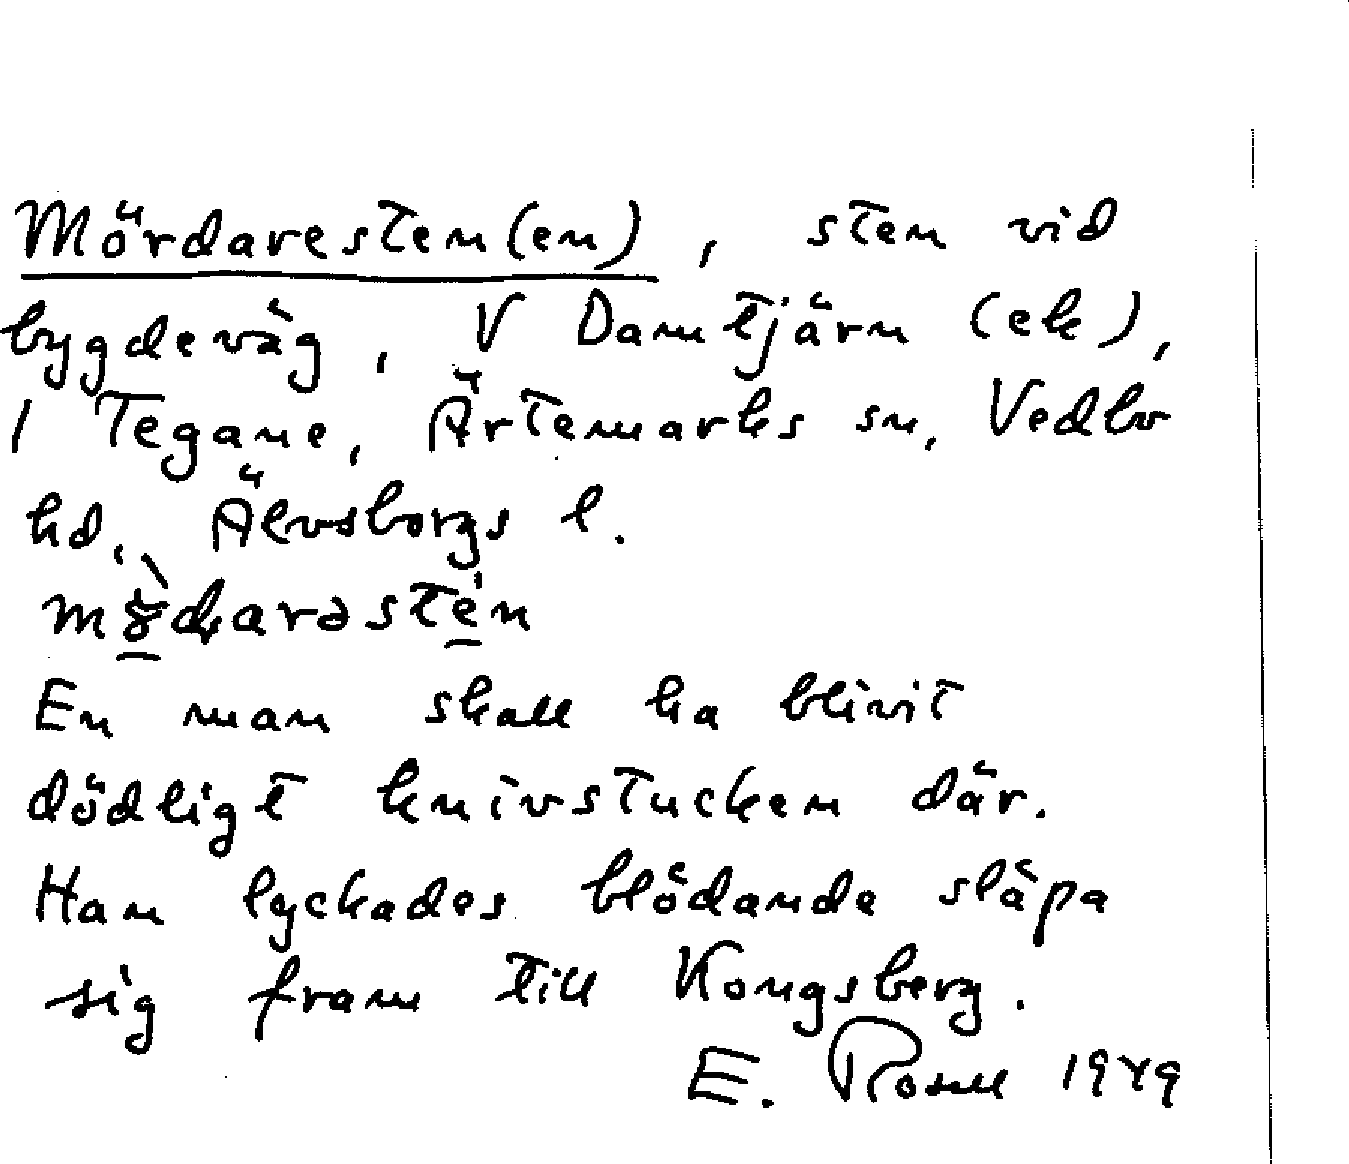 Mördaresten(en), sten vid
bygdeväg, V Damtjärn (ek),
1 Tegane, Ärtemarks sn, Vedbo
hd, Älvsborgs l.
En man skall ha blivit
dödligt knivstucken där.
Han lyckades blödande släpa
sig fram till Kongsberg.
E. Rosell 1949